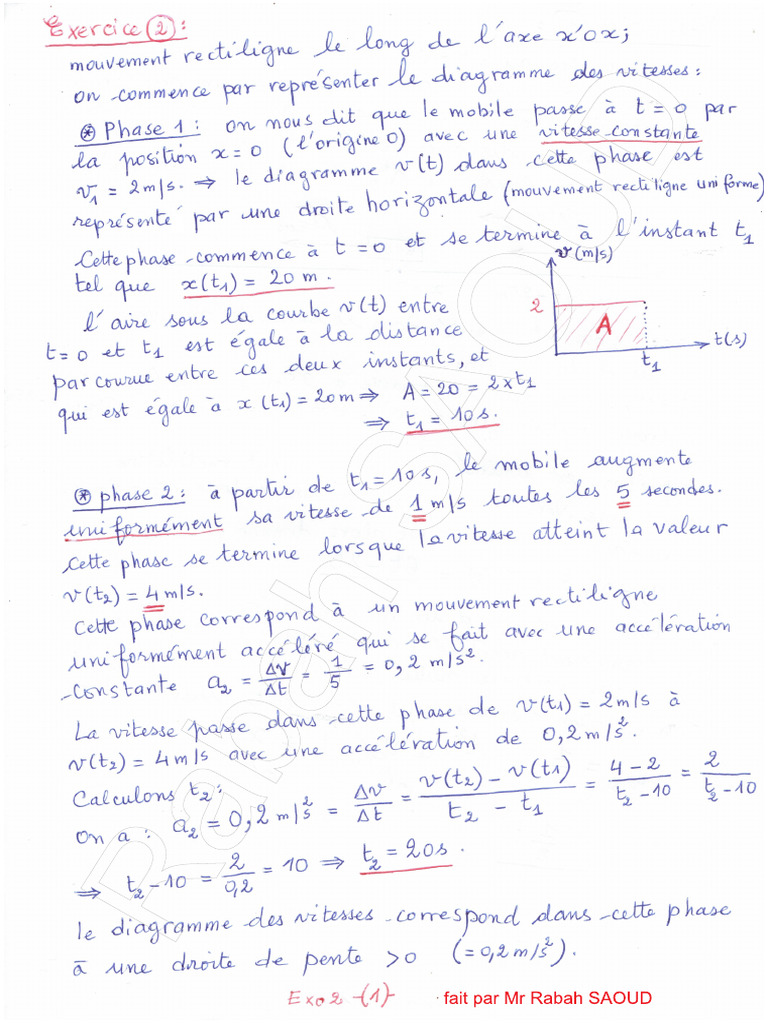 Exercice ②:
mouvement rectiligne le long de l'axe x'Ox;
on commence par représenter le diagramme des vitesses:
⊛ Phase 1: on nous dit que le mobile passe à t = 0 par
la position x=0 (l'origine O) avec une vitesse constante
v₁ = 2m/s. ⇒ le diagramme v(t) dans cette phase est
représenté par une droite horizontale (mouvement rectiligne uniforme)
Cette phase commence à t = 0 et se termine à l'instant t₁
tel que x(t₁) = 20 m.
v(m/s)
2
A
t(s)
t₁
l'aire sous la courbe v(t) entre
t=0 et t₁ est égale à la distance
parcourue entre ces deux instants, et
qui est égale à x(t₁)=20m ⇒ A=20 = 2×t₁
⇒ t₁ = 10s.
⊛ phase 2: à partir de t₁=10s, le mobile augmente
uniformément sa vitesse de 1 m/s toutes les 5 secondes.
Cette phase se termine lorsque la vitesse atteint la valeur
v(t₂) = 4 m/s.
Cette phase correspond à un mouvement rectiligne
uniformément accéléré qui se fait avec une accélération
constante a₂ = Δv/Δt = 1/5 = 0,2 m/s².
La vitesse passe dans cette phase de v(t₁) = 2m/s à
v(t₂) = 4m/s avec une accélération de 0,2m/s².
Calculons t₂:
On a: a₂ = 0,2 m/s² = Δv/Δt = (v(t₂) - v(t₁))/(t₂ - t₁) = (4-2)/(t₂-10) = 2/(t₂-10)
⇒ t₂-10 = 2/0,2 = 10 ⇒ t₂ = 20s.
le diagramme des vitesses correspond dans cette phase
à une droite de pente >0 (=0,2m/s²).
Exo2 -(1)- fait par Mr Rabah SAOUD
Rabah SAOUD